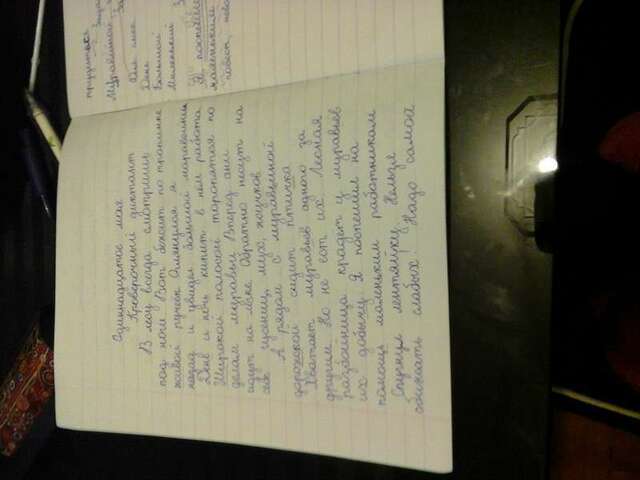 Одиннадцатое мая
Проверочный диктант
В лесу всегда смотришь
под ноги Вот бежит по тропинке
живой ручеёк Оглянулся я
назад и увидел большой муравейник
День и ночь кипит в нём работа
Широкой полосой торопятся по
делам муравьи Вперед они
идут на легке. Обратно несут на
себе гусениц, мух, жучков
А рядом с муравьиной
дорожкой сидит птичка
Хватает муравьёв одного за
другим Но не ест их. Лесная
разбойница крадёт у муравьёв
их добычу Я поспешил на
помощь маленьким работникам
Спугнул лентяйку. Нельзя
обижать слабых. Надо самой
трудиться
Муравьиной
День
Большой
Маленький
Я поспешил
маленьким